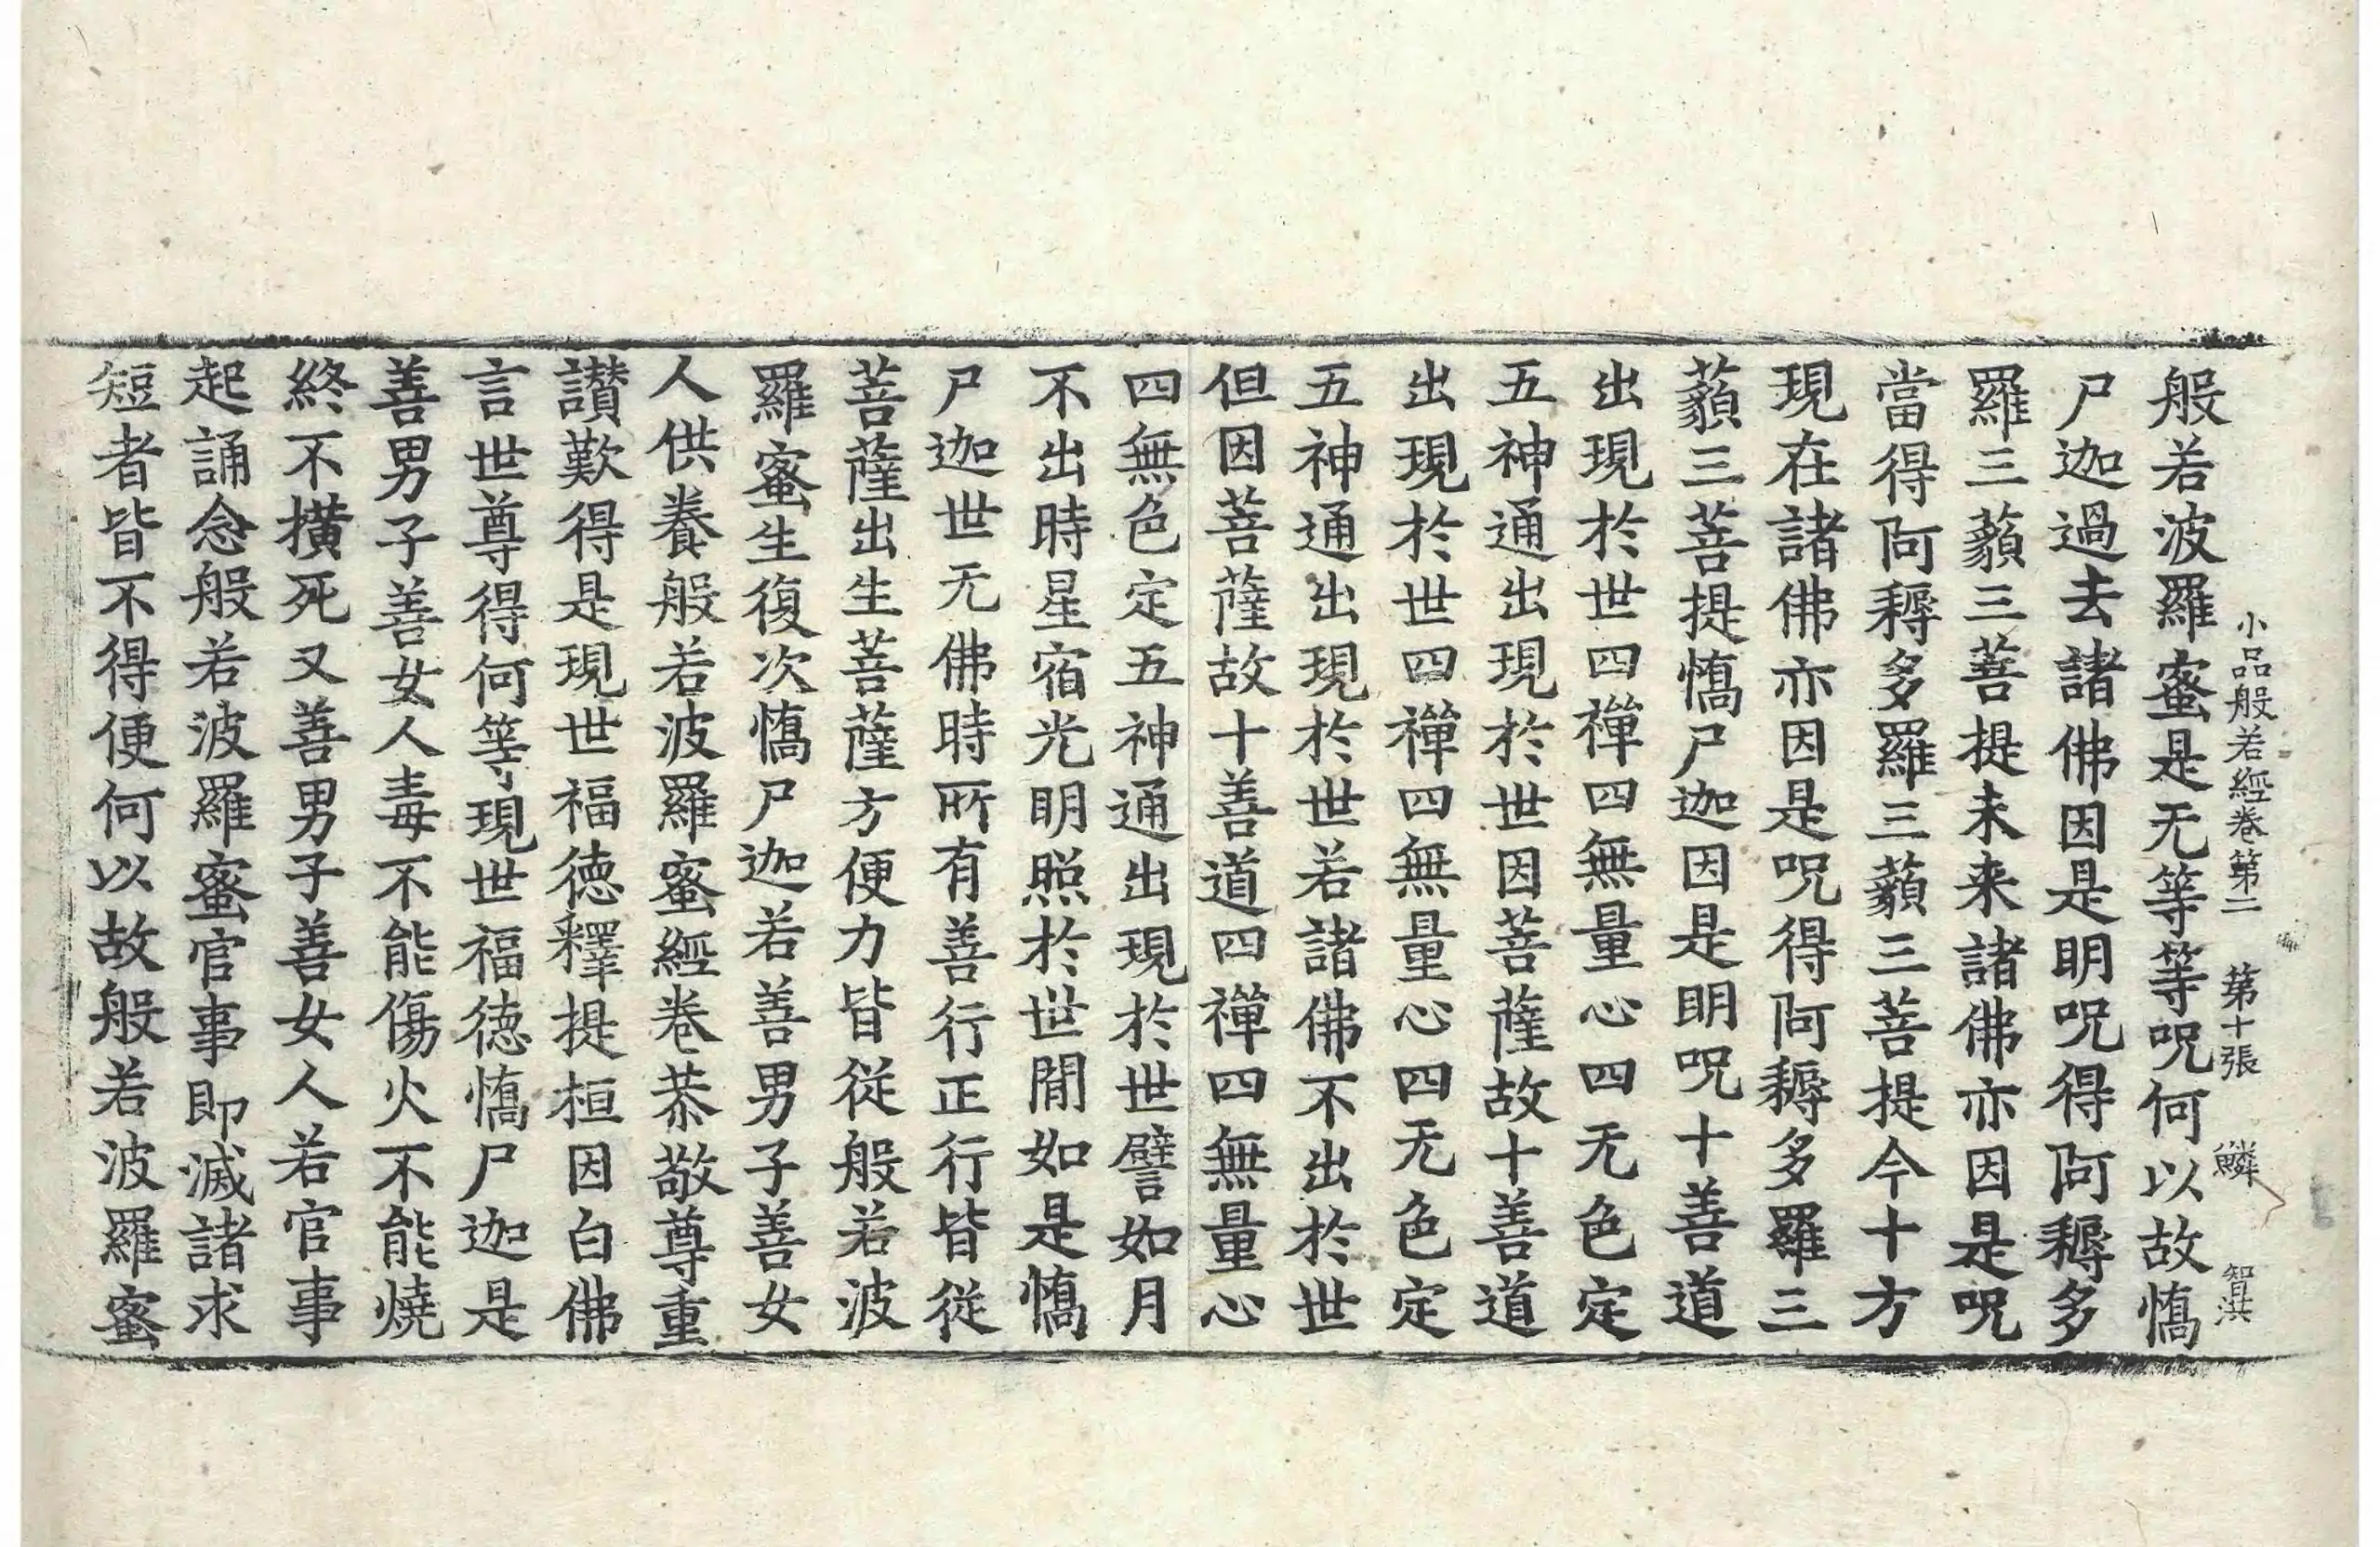 小品般若經卷第二 第十張 鱗 智洪
般若波羅蜜是无等等呪何以故憍
尸迦過去諸佛因是明呪得阿耨多
羅三藐三菩提未来諸佛亦因是呪
當得阿耨多羅三藐三菩提今十方
現在諸佛亦因是呪得阿耨多羅三
藐三菩提憍尸迦因是明呪十善道
出現於世四禪四無量心四无色定
五神通出現於世因菩薩故十善道
出現於世四禪四無量心四无色定
五神通出現於世若諸佛不出於世
但因菩薩故十善道四禪四無量心
四無色定五神通出現於世譬如月
不出時星宿光明照於世閒如是憍
尸迦世无佛時所有善行正行皆從
菩薩出生菩薩方便力皆從般若波
羅蜜生復次憍尸迦若善男子善女
人供養般若波羅蜜經卷恭敬尊重
讃歎得是現世福徳釋提桓因白佛
言世尊得何等現世福徳憍尸迦是
善男子善女人毒不能傷火不能燒
終不橫死又善男子善女人若官事
起誦念般若波羅蜜官事即滅諸求
短者皆不得便何以故般若波羅蜜